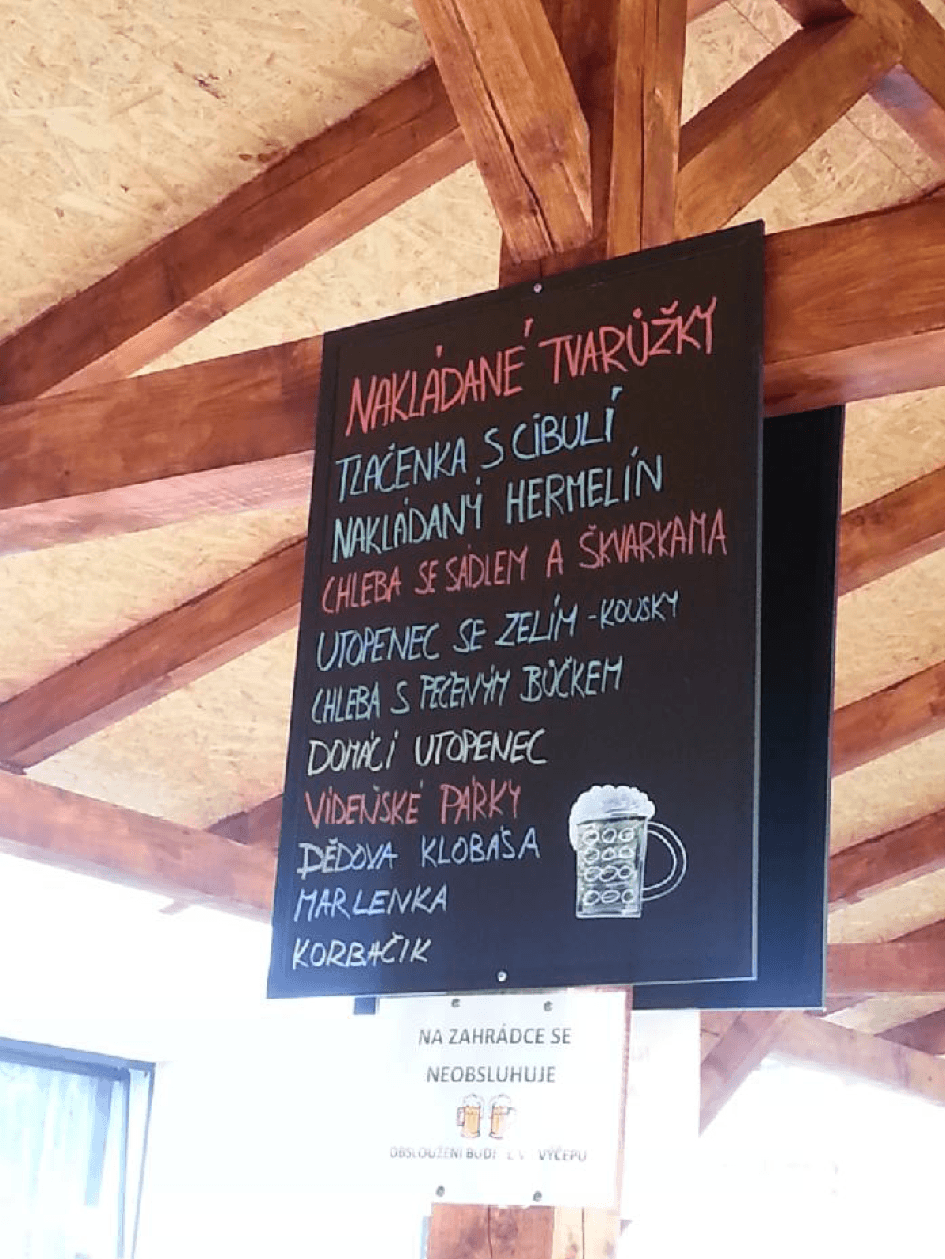 NAKLÁDANÉ TVARŮŽKY
TLAČENKA S CIBULÍ
NAKLÁDANÝ HERMELÍN
CHLEBA SE SÁDLEM A ŠKVARKAMA
UTOPENEC SE ZELÍM - KOUSKY
CHLEBA S PEČENÝM BŮČKEM
DOMÁCÍ UTOPENEC
VÍDEŇSKÉ PÁRKY
DĚDOVA KLOBÁSA
MARLENKA
KORBAČIK
NA ZAHRÁDCE SE
NEOBSLUHUJE
OBSLOUŽENI VÝČEPU